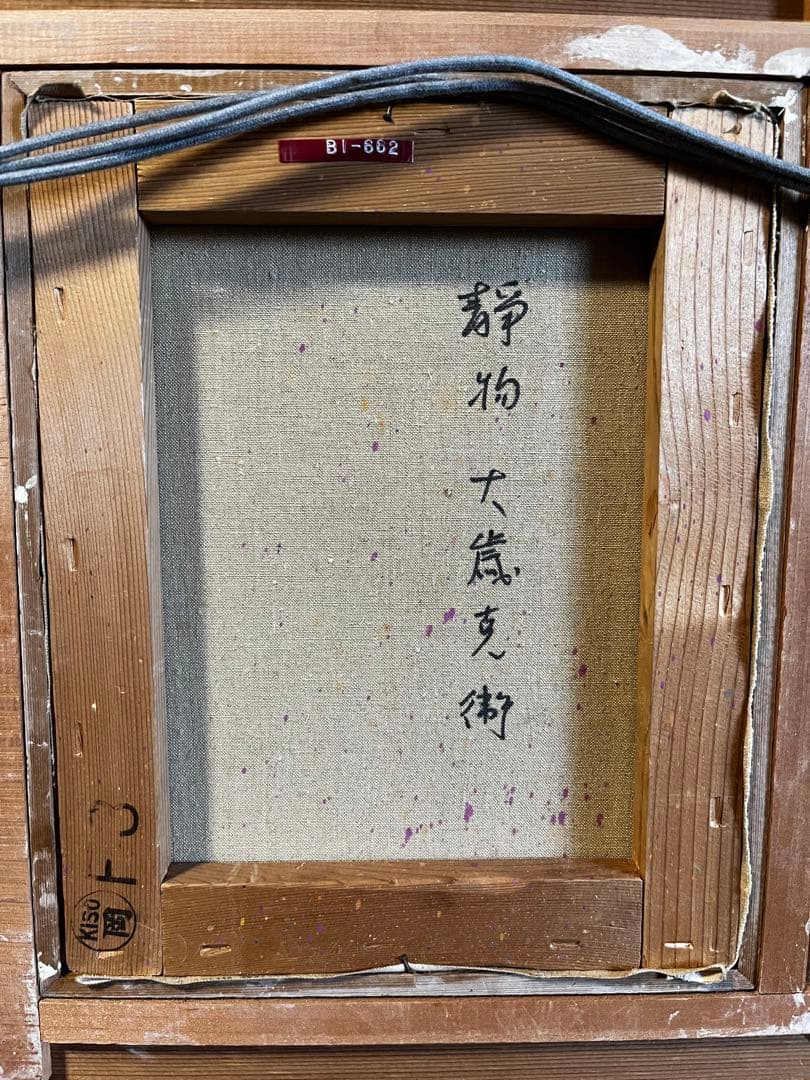 BI-662
静物 大歳克衛
F3
KISO